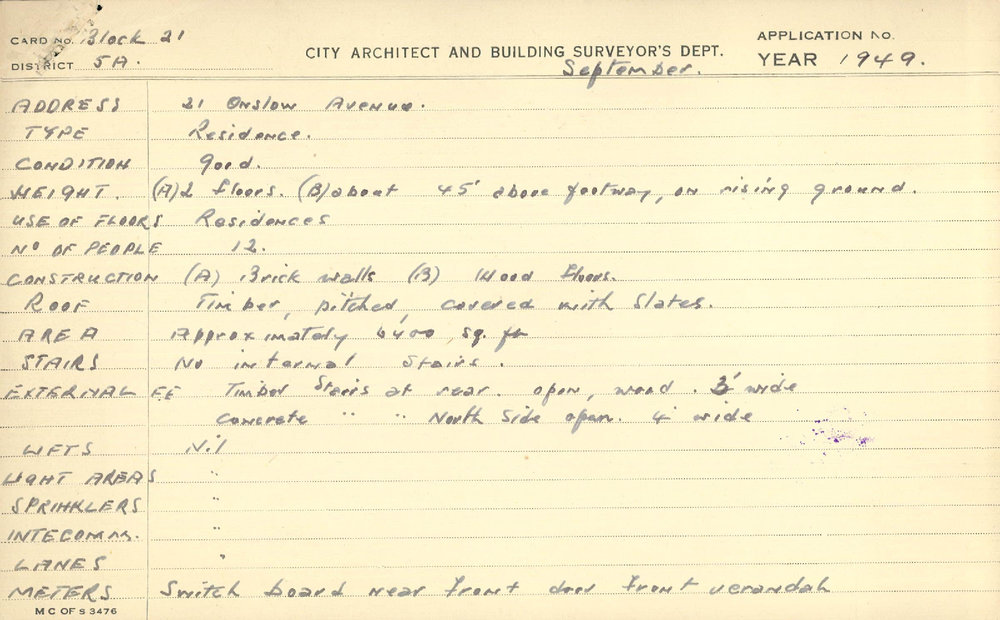 CARD No. Block 21
DISTRICT 5A.
CITY ARCHITECT AND BUILDING SURVEYOR'S DEPT.
September.
APPLICATION No.
YEAR 1949.
ADDRESS 21 Onslow Avenue.
TYPE Residence.
CONDITION good.
HEIGHT. (A) 2 floors. (B) about 45' above footway, on rising ground.
USE OF FLOORS Residences
No OF PEOPLE 12.
CONSTRUCTION (A) Brick walls (B) Wood floors.
ROOF Timber, pitched, covered with Slates.
AREA Approximately 6400 sq. ft
STAIRS No internal Stairs.
EXTERNAL FE Timber Stairs at rear. open, wood. 3' wide
Concrete " " North Side open. 4' wide
LIFTS Nil
LIGHT AREAS "
SPRINKLERS "
INTECOMM. "
LANES "
METERS Switch board near front door front verandah
M C OF S 3476